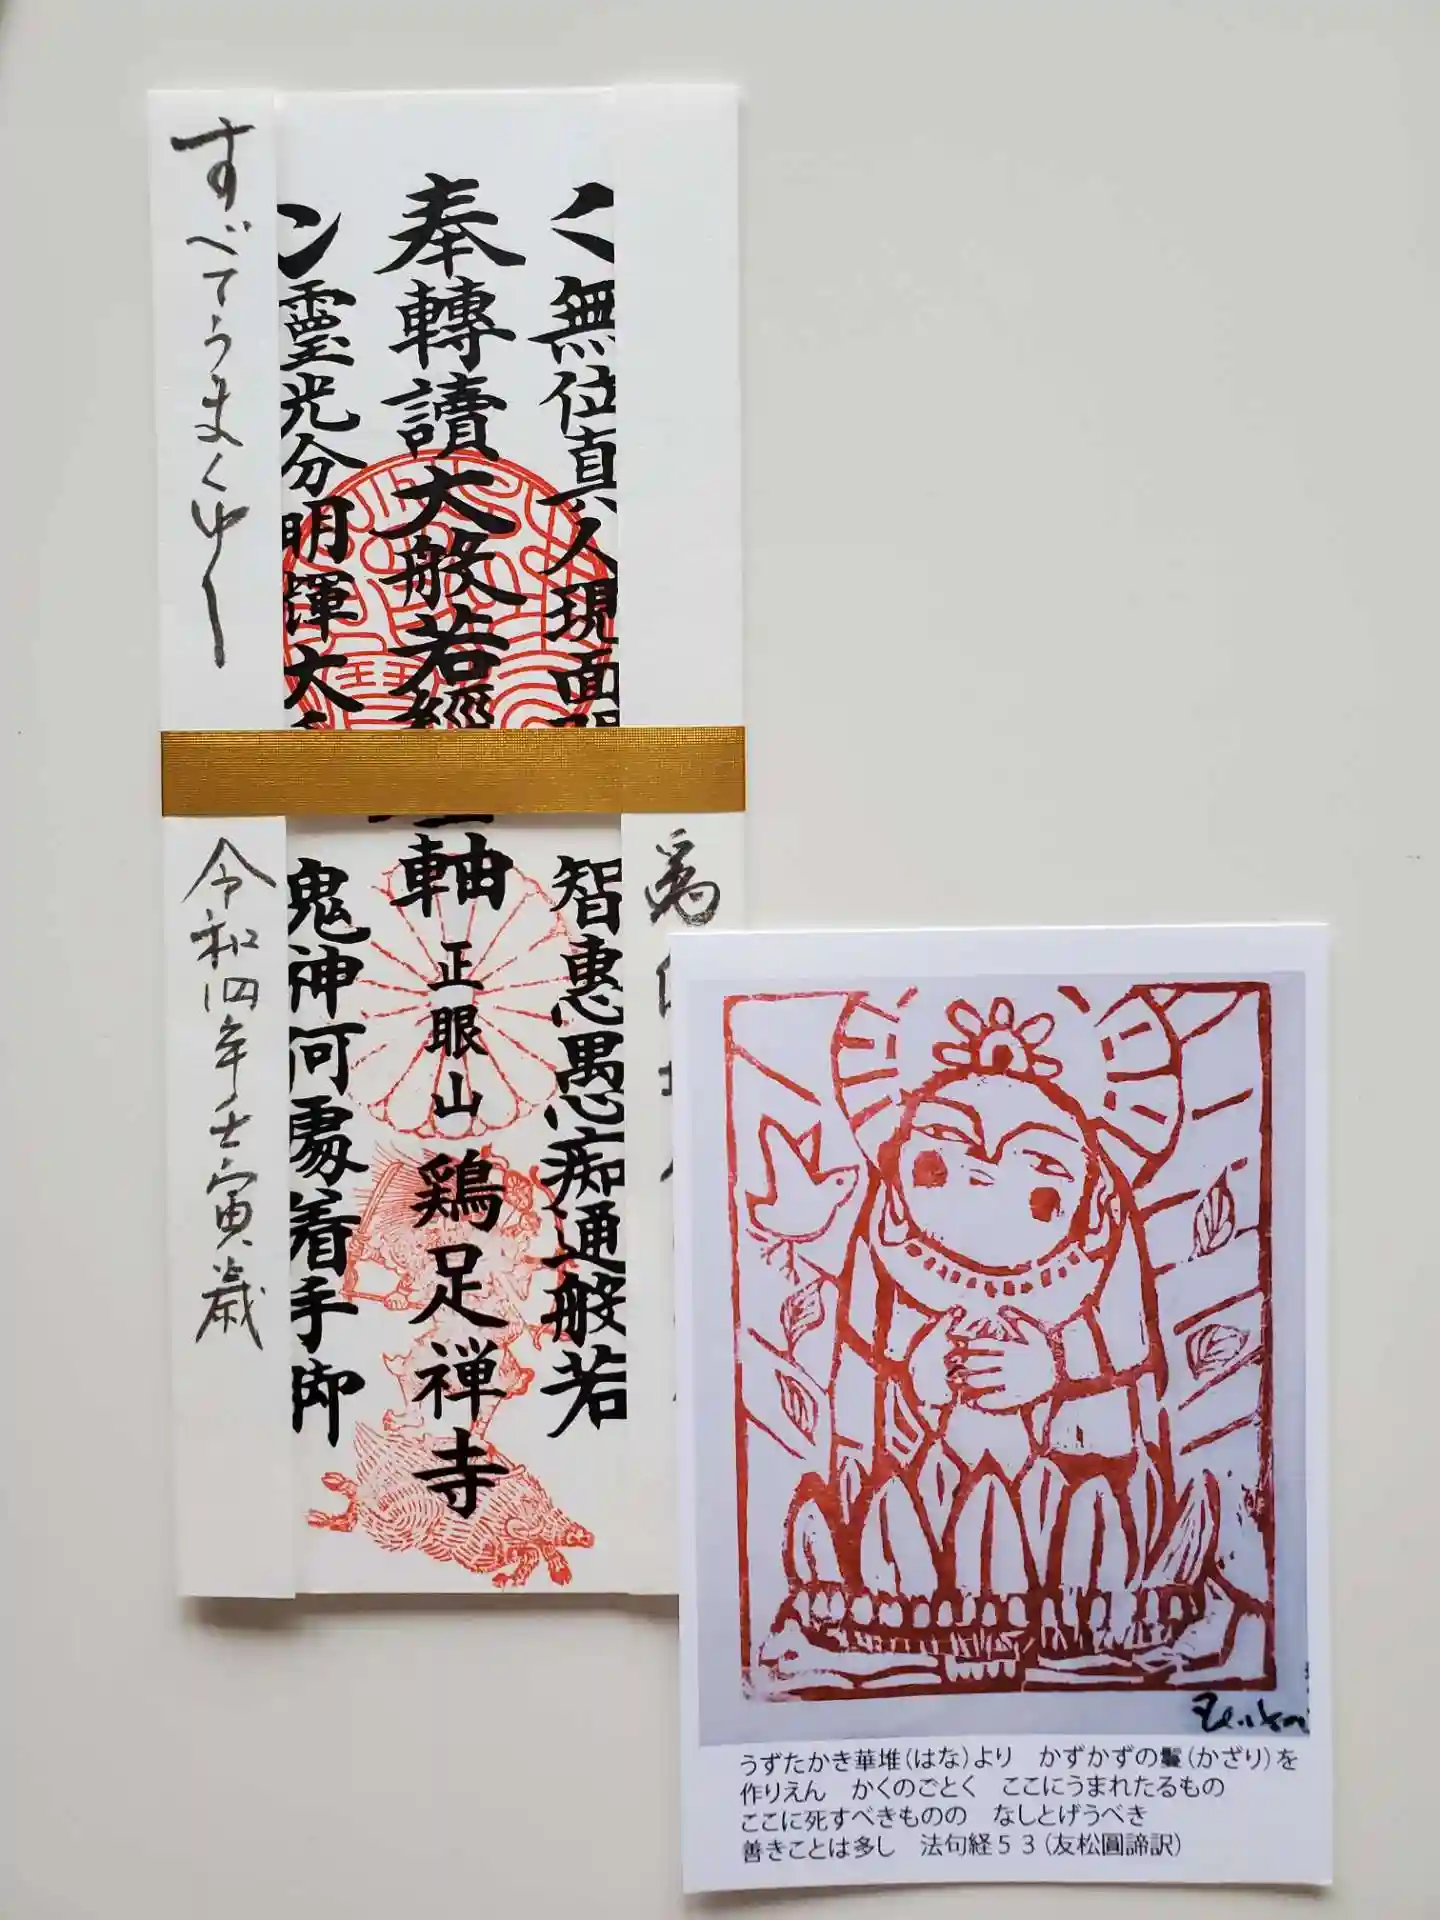 無位真人現面
智惠愚痴通般若
奉轉讀大般若經
軸
正眼山
鶏足禅寺
霊光分明輝大
鬼神何處着手脚
すべてうまくゆく
令和四年壬寅歳
為
うずたかき華堆(はな)より かずかずの鬘(かざり)を
作りえん かくのごとく ここにうまれたるもの
ここに死すべきものの なしとげうべき
善きことは多し 法句経53(友松圓諦訳)